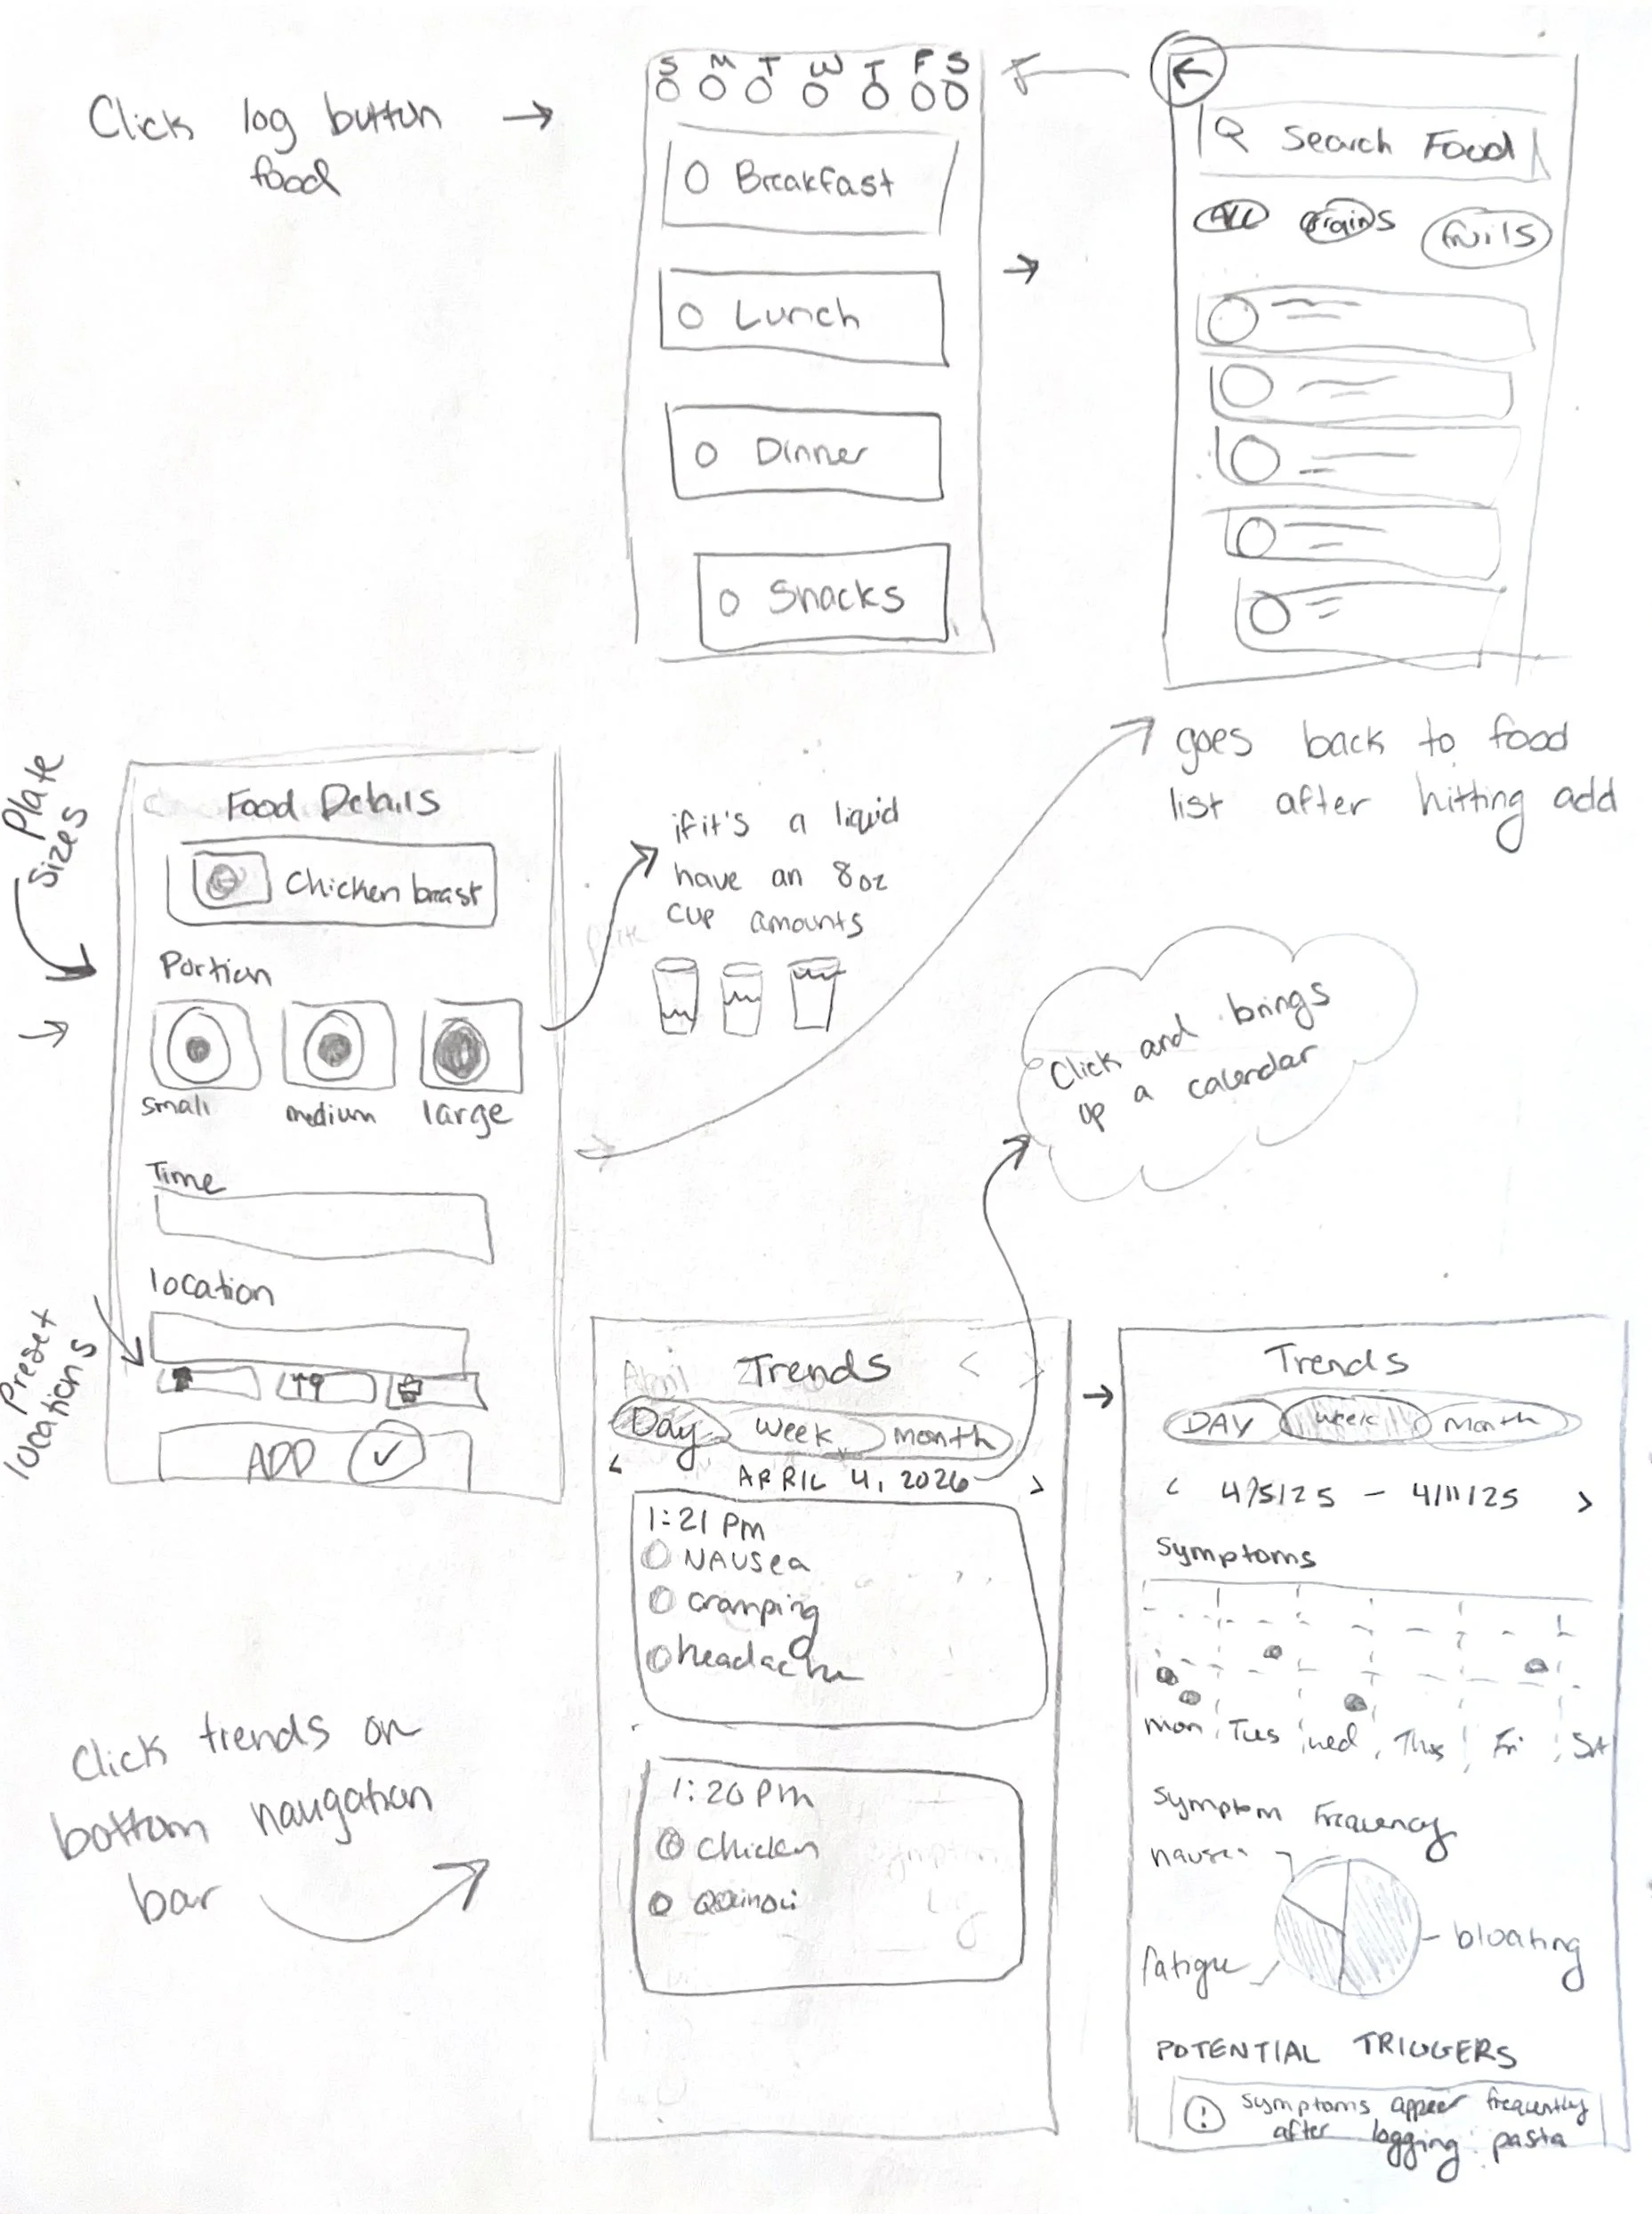 Click log button →
food
S M T W T F S
Breakfast
Lunch
Dinner
Snacks
←
Search Food
ALL grains fruits
goes back to food
list after hitting add
Plate
Sizes
Food Details
Chicken breast
Portion
small medium large
Time
location
Preset
locations
ADD ✓
if it's a liquid
have an 8oz
cup amounts
Click and brings
up a calendar
Click trends on
bottom navigation
bar
April
Trends < >
Day week month
< APRIL 4, 2026 >
1:21 Pm
NAUSEA
cramping
headache
1:20 Pm
Chicken
Quinoa
Trends
DAY week month
< 4/5/25 - 4/11/25 >
Symptoms
mon Tues wed Thus Fri SAt
Symptom Frequency
nausea
bloating
fatigue
POTENTIAL TRIGGERS
! symptoms appear frequently
after logging pasta